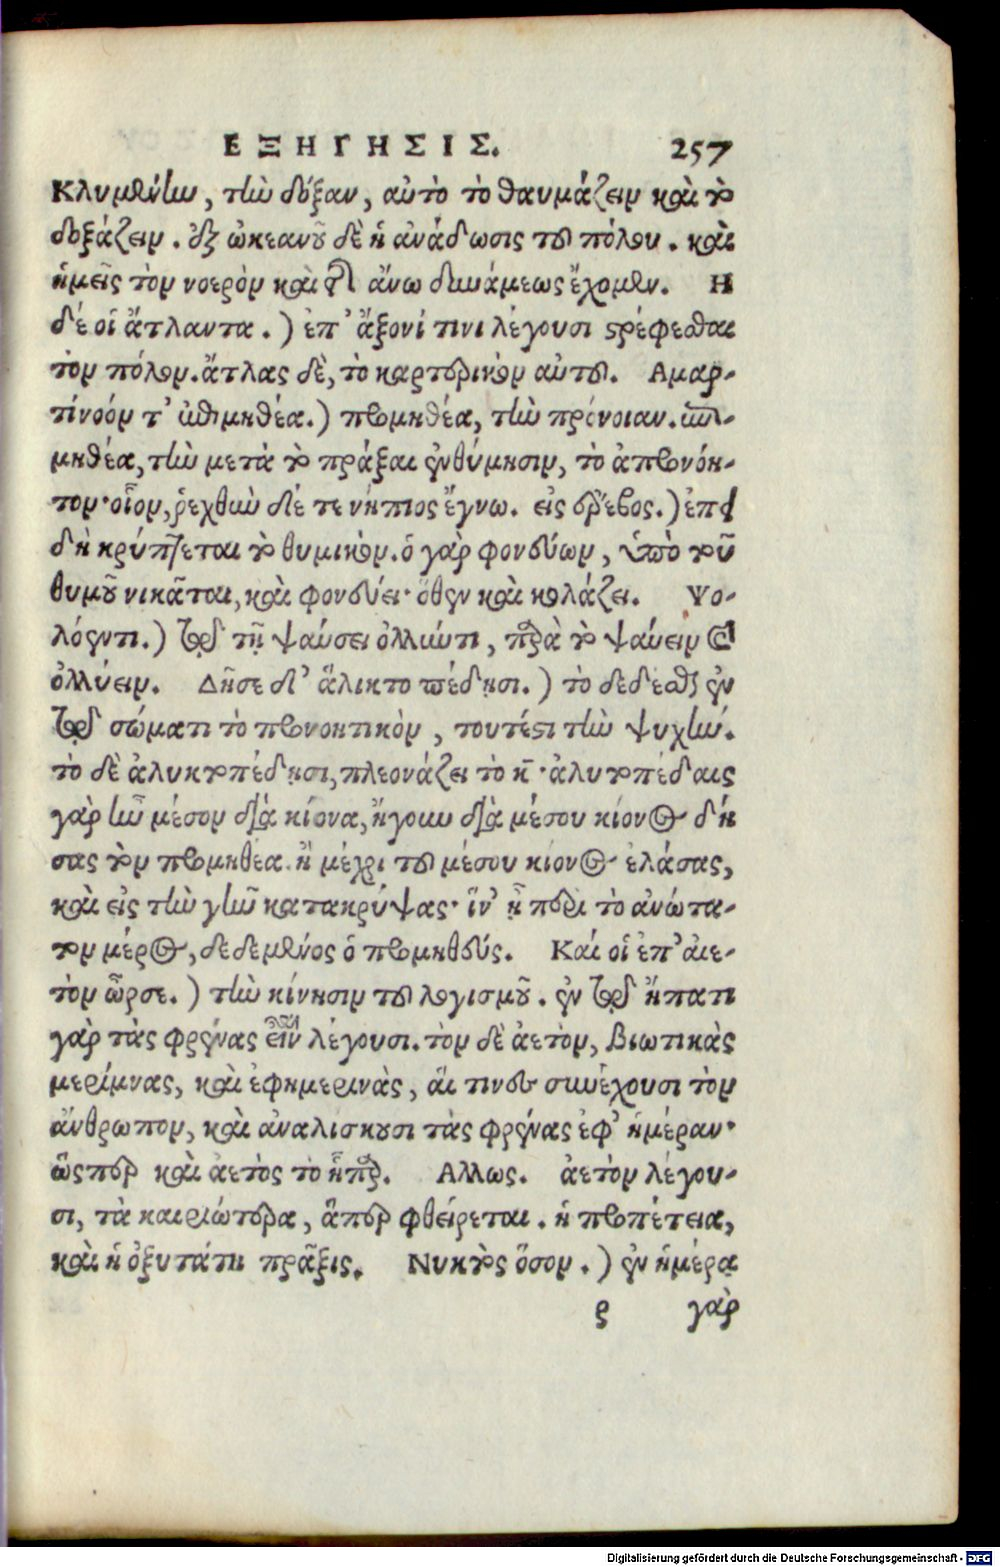 ΕΞΗΓΗΣΙΣ. 257
Κλυμένην, τὴν δόξαν, αὐτὸ τὸ θαυμάζειν καὶ τὸ
δοξάζειν. ἐξ ὠκεανοῦ δὲ ἡ ἀνάδωσις τοῦ πόλου. καὶ
ἡμεῖς τὸν νοερὸν καὶ τῆς ἄνω δυνάμεως ἔχομεν. Η
δέ οἱ ἄτλαντα.) ἐπ' ἄξονί τινι λέγουσι στρέφεσθαι
τὸν πόλον. ἄτλας δὲ, τὸ καρτερικὸν αὐτοῦ. Αμαρ-
τίνοόν τ' ἐπιμηθέα.) προμηθέα, τὴν πρόνοιαν. ἐπι-
μηθέα, τὴν μετὰ τὸ πράξαι ἐνθύμησιν, τὸ ἀπρονόη-
τον· οἷον, ῥεχθὲν δέ τε νήπιος ἔγνω. εἰς ἔρεβος.) ἐπεὶ
δὴ κρύπτεται τὸ θυμικόν. ὁ γὰρ φονεύων, ὑπὸ τοῦ
θυμοῦ νικᾶται, καὶ φονεύει· ὅθεν καὶ κολάζει. Ψο-
λόεντι.) τῷ τῇ ψαύσει ὀλλύντι, παρὰ τὸ ψαύειν καὶ
ὀλλύειν. Δῆσε δ' ἄλικτο πέδῃσι.) τὸ δεδέσθαι ἐν
τῷ σώματι τὸ προνοητικὸν, τουτέστι τὴν ψυχήν.
τὸ δὲ ἀλυκτοπέδῃσι, πλεονάζει τὸ κ̄· ἀλυτοπέδαις
γὰρ ἦν μέσον διὰ κίονα, ἤγουν διὰ μέσου κίονος δή
σας τὸν προμηθέα. ἢ μέχρι τοῦ μέσου κίονος ἐλάσας,
καὶ εἰς τὴν γῆν κατακρύψας· ἵν' ᾖ περὶ τὸ ἀνώτα-
τον μέρος, δεδεμένος ὁ προμηθεύς. Καί οἱ ἐπ' αἰε-
τὸν ὦρσε.) τὴν κίνησιν τοῦ λογισμοῦ. ἐν τῷ ἥπατι
γὰρ τὰς φρένας εἶναι λέγουσι. τὸν δὲ ἀετὸν, βιωτικὰς
μερίμνας, καὶ ἐφημερινὰς, αἵ τινες συνέχουσι τὸν
ἄνθρωπον, καὶ ἀναλίσκουσι τὰς φρένας ἐφ' ἡμέραν·
ὥςπερ καὶ ἀετὸς τὸ ἧπαρ. Αλλως. ἀετὸν λέγου-
σι, τὰ καιριώτερα, ἅπερ φθείρεται. ἡ προπέτεια,
καὶ ἡ ὀξυτάτη πρᾶξις. Νυκτὸς ὅσον.) ἐν ἡμέρα
ς γὰρ
Digitalisierung gefördert durch die Deutsche Forschungsgemeinschaft - DFG